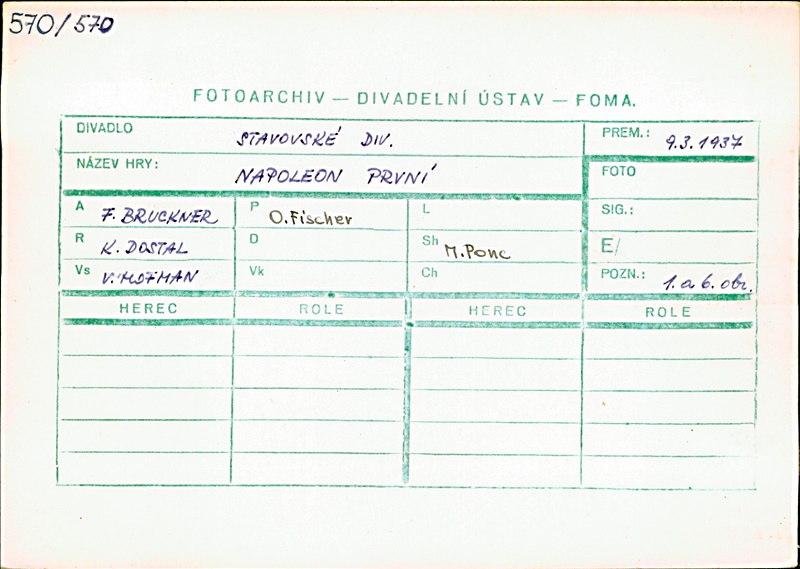 570/570
FOTOARCHIV — DIVADELNÍ ÚSTAV — FOMA.
DIVADLO STAVOVSKÉ DIV. PREM.: 9.3.1937
NÁZEV HRY: NAPOLEON PRVNÍ FOTO
A F. BRUCKNER P O. Fischer L SIG.:
R K. DOSTAL D Sh M. Ponc E/
Vs V. HOFMAN Vk Ch POZN.: 1. a 6. obr.
HEREC ROLE HEREC ROLE